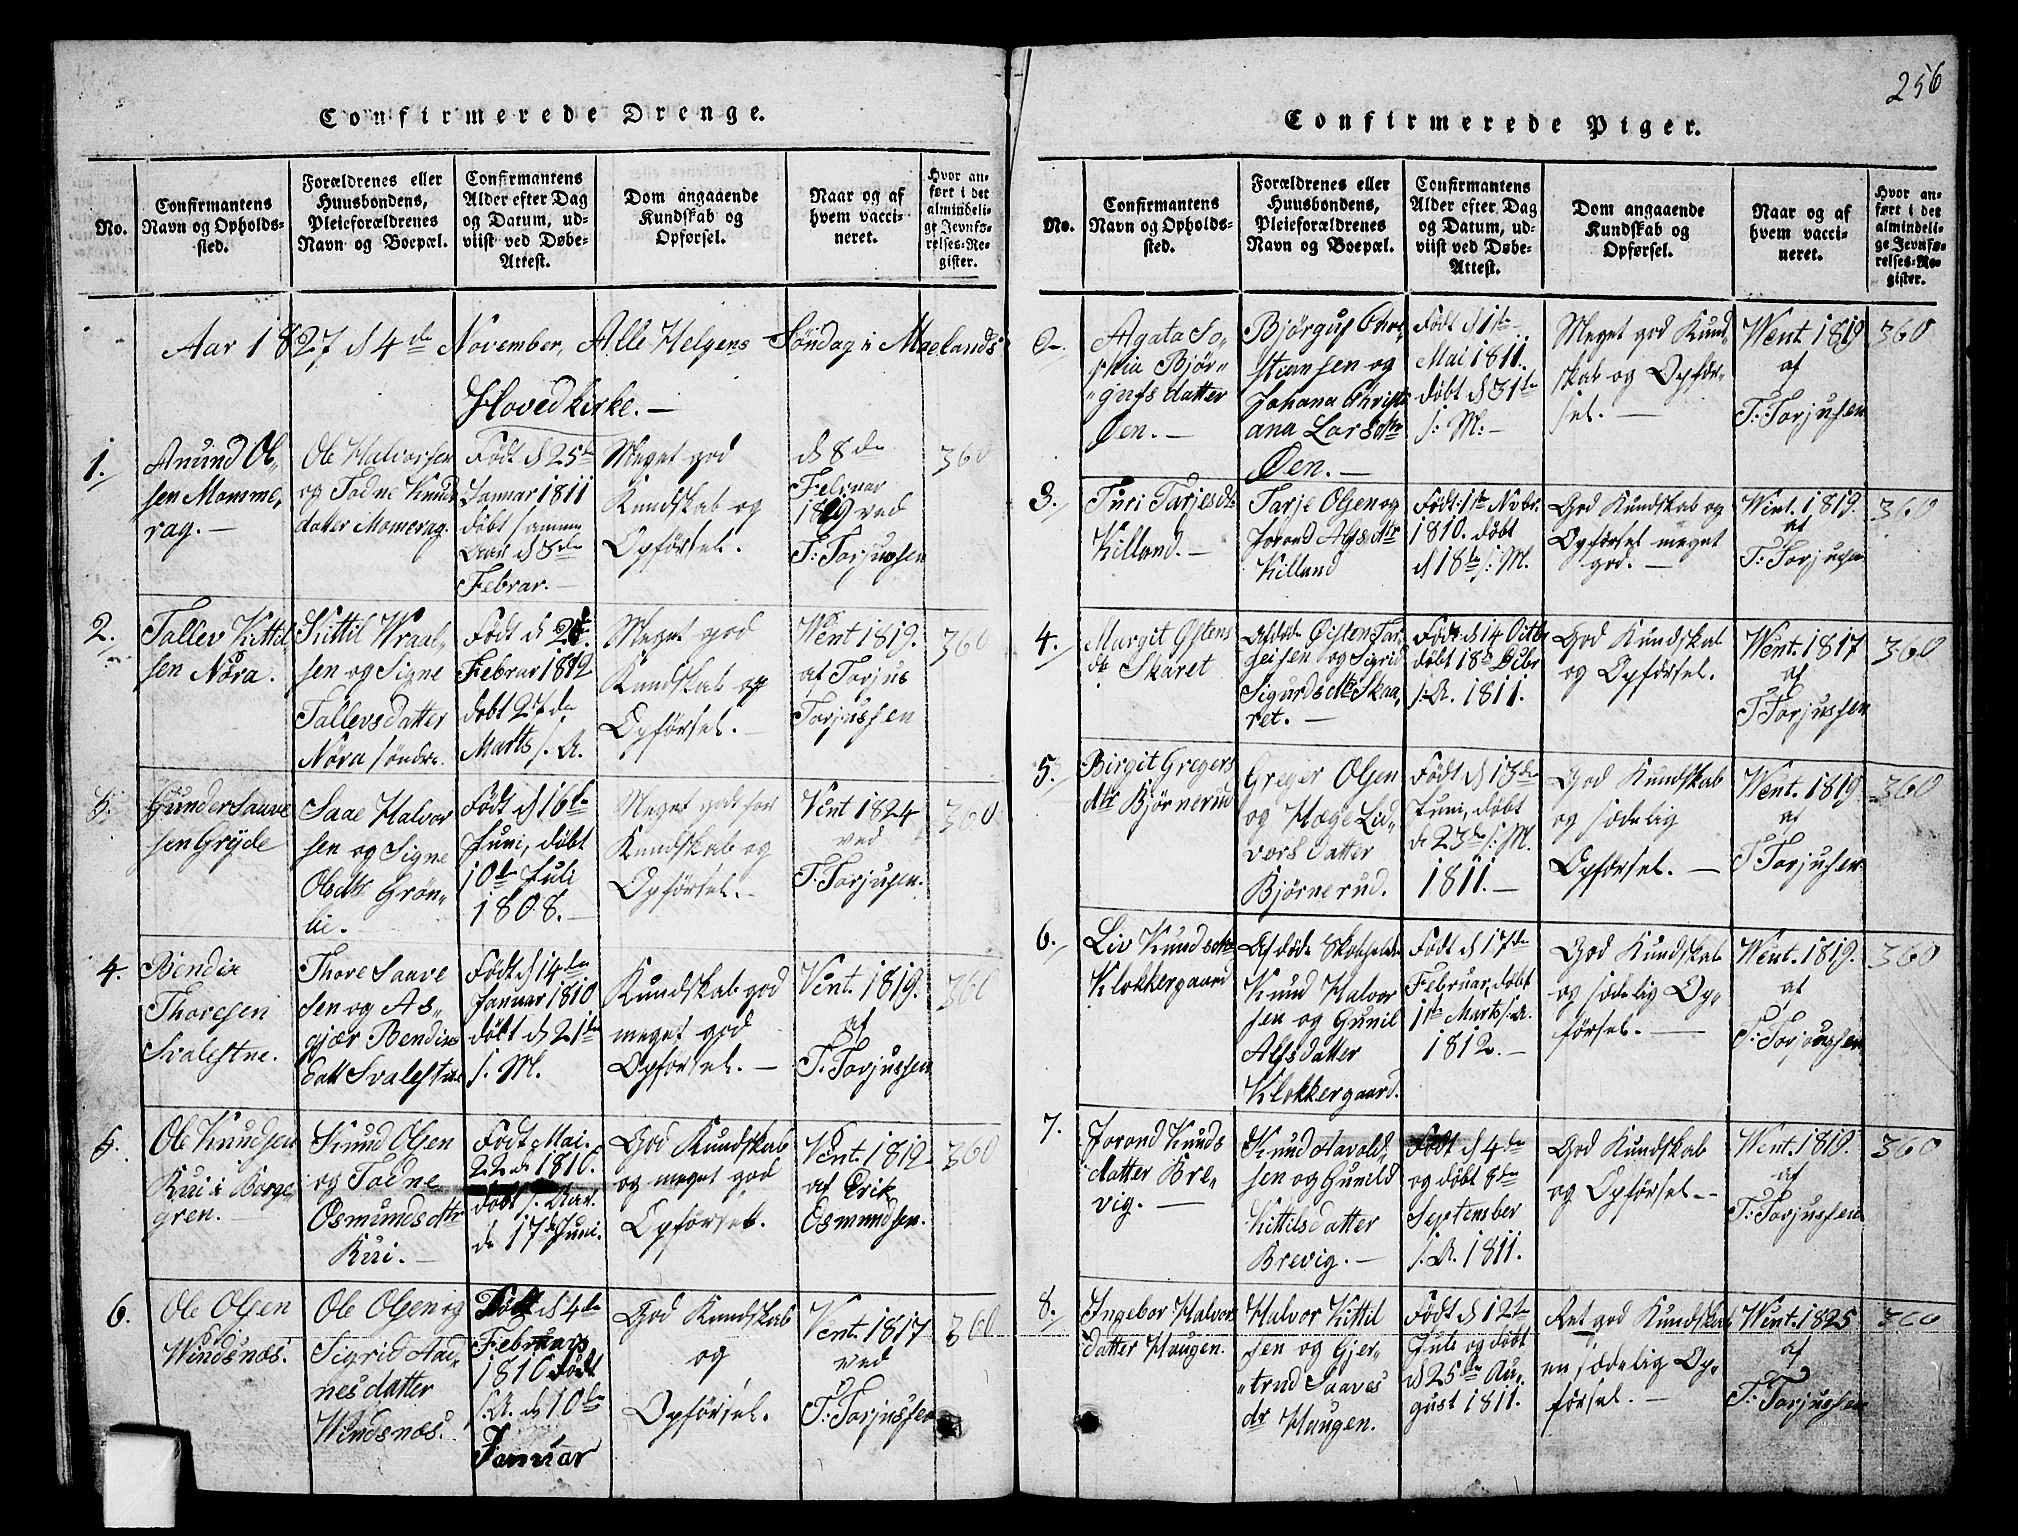 256
Confirmerede Drenge.
No.
Confirmantens
Navn og Opholds-
sted.
Forældrenes eller
Huusbondens,
Pleieforældrenes
Navn og Boepæl.
Confirmantens
Alder efter Dag
og Datum, ud-
viist ved Døbe-
Attest.
Dom angaaende
Kundskab og
Opførsel.
Naar og af
hvem vacci-
neret.
Hvor an-
ført i det
almindeli-
ge Jevnfø-
relses-Re-
gister.
Aar 1827 d 4de November, Alle Helgens Söndag i Moelands
Hovedkirke. —
1.
Anund Ol,,
sen Momme,
rag. —
Ole Halvorssen
og Todne Knuds
datter Momerag.
Födt d 25de
Januar 1811
döbt samme
Aar d 3de
Februar. —
Meget god
Kundskab og
Opförsel.
d 8de
Februar
1819 ved
T: Torjussen
360
2.
Tallev Kittil
sen Nöra.
Kittil Wraal,,
sen og Signe
Tallevsdatter
Nöra söndre.
Födt d
Februar 1812
döbt 27de
Marts s. A.
Meget god
Kundskab og
Opförsel. —
Vent 1819.
af Torjus
Torjussen
360
3.
Gunder Saave
sen Gryde
Saae Halvor
sen og Signe
Olsdtr Grön,,
lie.
Födt d 16de
Juni, döbt
10de Juli
1808. —
Meget god
Kundskab og
Opförsel. —
Vent 1824
ved
T: Torjusen.
360
4.
Bendix
Thoresen
Svalestue.
Thore Saave
sen og As,,
gjær Bendixs
datt Svalestue
Födt d 14de
Januar 1810
döbt d 21de
s. M.
Kundskab god
meget god
Opförsel. —
Vent. 1819.
af
T. Torjussen
360
5.
Ole Knudsen
Kui i Borge,
gren. —
Knud Olsen
og Todne
Osmundsdtr
Kui. —
Födt Mai.
22de 1810.
döbt s. Aar.
de 17de Juni.
God Kundskab
og meget god
Opförsel.
Vent. 1812
af Erik
Osmundsen.
360
6.
Ole Olsen
Windsnæs.
Ole Olsen og
Sigrid Aad,,
nesdatter
Windsnæs.
Födt d 4de
Februars
1810 Födt
s. A. d 10de
Januar
God Kundskab
og
Opförsel.
Vent. 1817
ved
T: Torjussen
360
Confirmerede Piger.
No.
Confirmantens
Navn og Opholds-
sted.
Forældrenes eller
Huusbondens,
Pleieforældrenes
Navn og Boepæl.
Confirmantens
Alder efter Dag
og Datum, ud-
viist ved Døbe-
Attest.
Dom angaaende
Kundskab og
Opførsel.
Naar og af
hvem vacci-
neret.
Hvor an-
ført i det
almindeli-
ge Jevnfø-
relses-Re-
gister.
Agata So,,
phia Björ,,
gufsdatter
Øen. —
Björguf Chri
stiansen og
Johana Christi
ana Larsdtr
Øen. —
Födt d 1te
Mai 1811.
döbt d 31te
s: M: —
Meget god Kund,,
skab og Opför,,
sel. —
Went. 1819
af
T: Torjusen
360
3.
Turi Tarjesdtr
Killand. —
Tarje Olsen og
Jorond Alfsdtr
Killand
Födt: 1te Novbr.
1810. döbt
d 18de s: M.
God Kundskab og
Opförsel meget
god. —
Wint. 1819.
af
T: Torjusen
360
4.
Margit Östens
dr Skaret
Afdöde Östen Tar
jeisen og Sigrid
Sigurdsdtr Skaa,
ret. —
Födt d 14 Octbr
döbt 18de Decbr
s: A. 1811.
God Kundskab
og Opförsel.
Went. 1817
af
T Torjussen
360
5.
Birgit Gregers
dtr Björnerud
Greger Olsen
og Hæge Lid,,
vorsdatter
Björnerud.
Födt d 13de
Juni, döbt
de 23de s: M.
1811. —
God Kundskab
og sædelig
Opförsel. —
Went. 1819
af
T Torjusen
360
6.
Liv Knudsdtr
Klokkergaard
Afdöde Skoeholder
Knud Halvor
sen og Gunil
Alfsdatter
Klokkergaard.
Födt d 17de
Februar, döbt
1te Marts s. A.
1812. —
God Kundskab
og sædelig Op,,
försel. —
Went. 1819.
af
T: Torjussen
360
7.
Jorond Knuds
datter Bre,
vig. —
Knud Havold,
sen og Gunild
Kittilsdatter
Brevig. —
Födt d 4de
og döbt 8de
September
s. A. 1811.
God Kundskab
og Opförsel. —
Went. 1819.
af
T: Torjussen
360
8.
Ingebor Halvors
datter Haugen.
Halvor Kittil
sen og Gjer,,
trud Saaves
dr Haugen.
Födt d 12te
Jule og döbt
d 25de Au,
gust 1811.
Ret god Kundskab
en sædelig Op,,
försel. —
Went. 1825
af
T: Torjussen
360